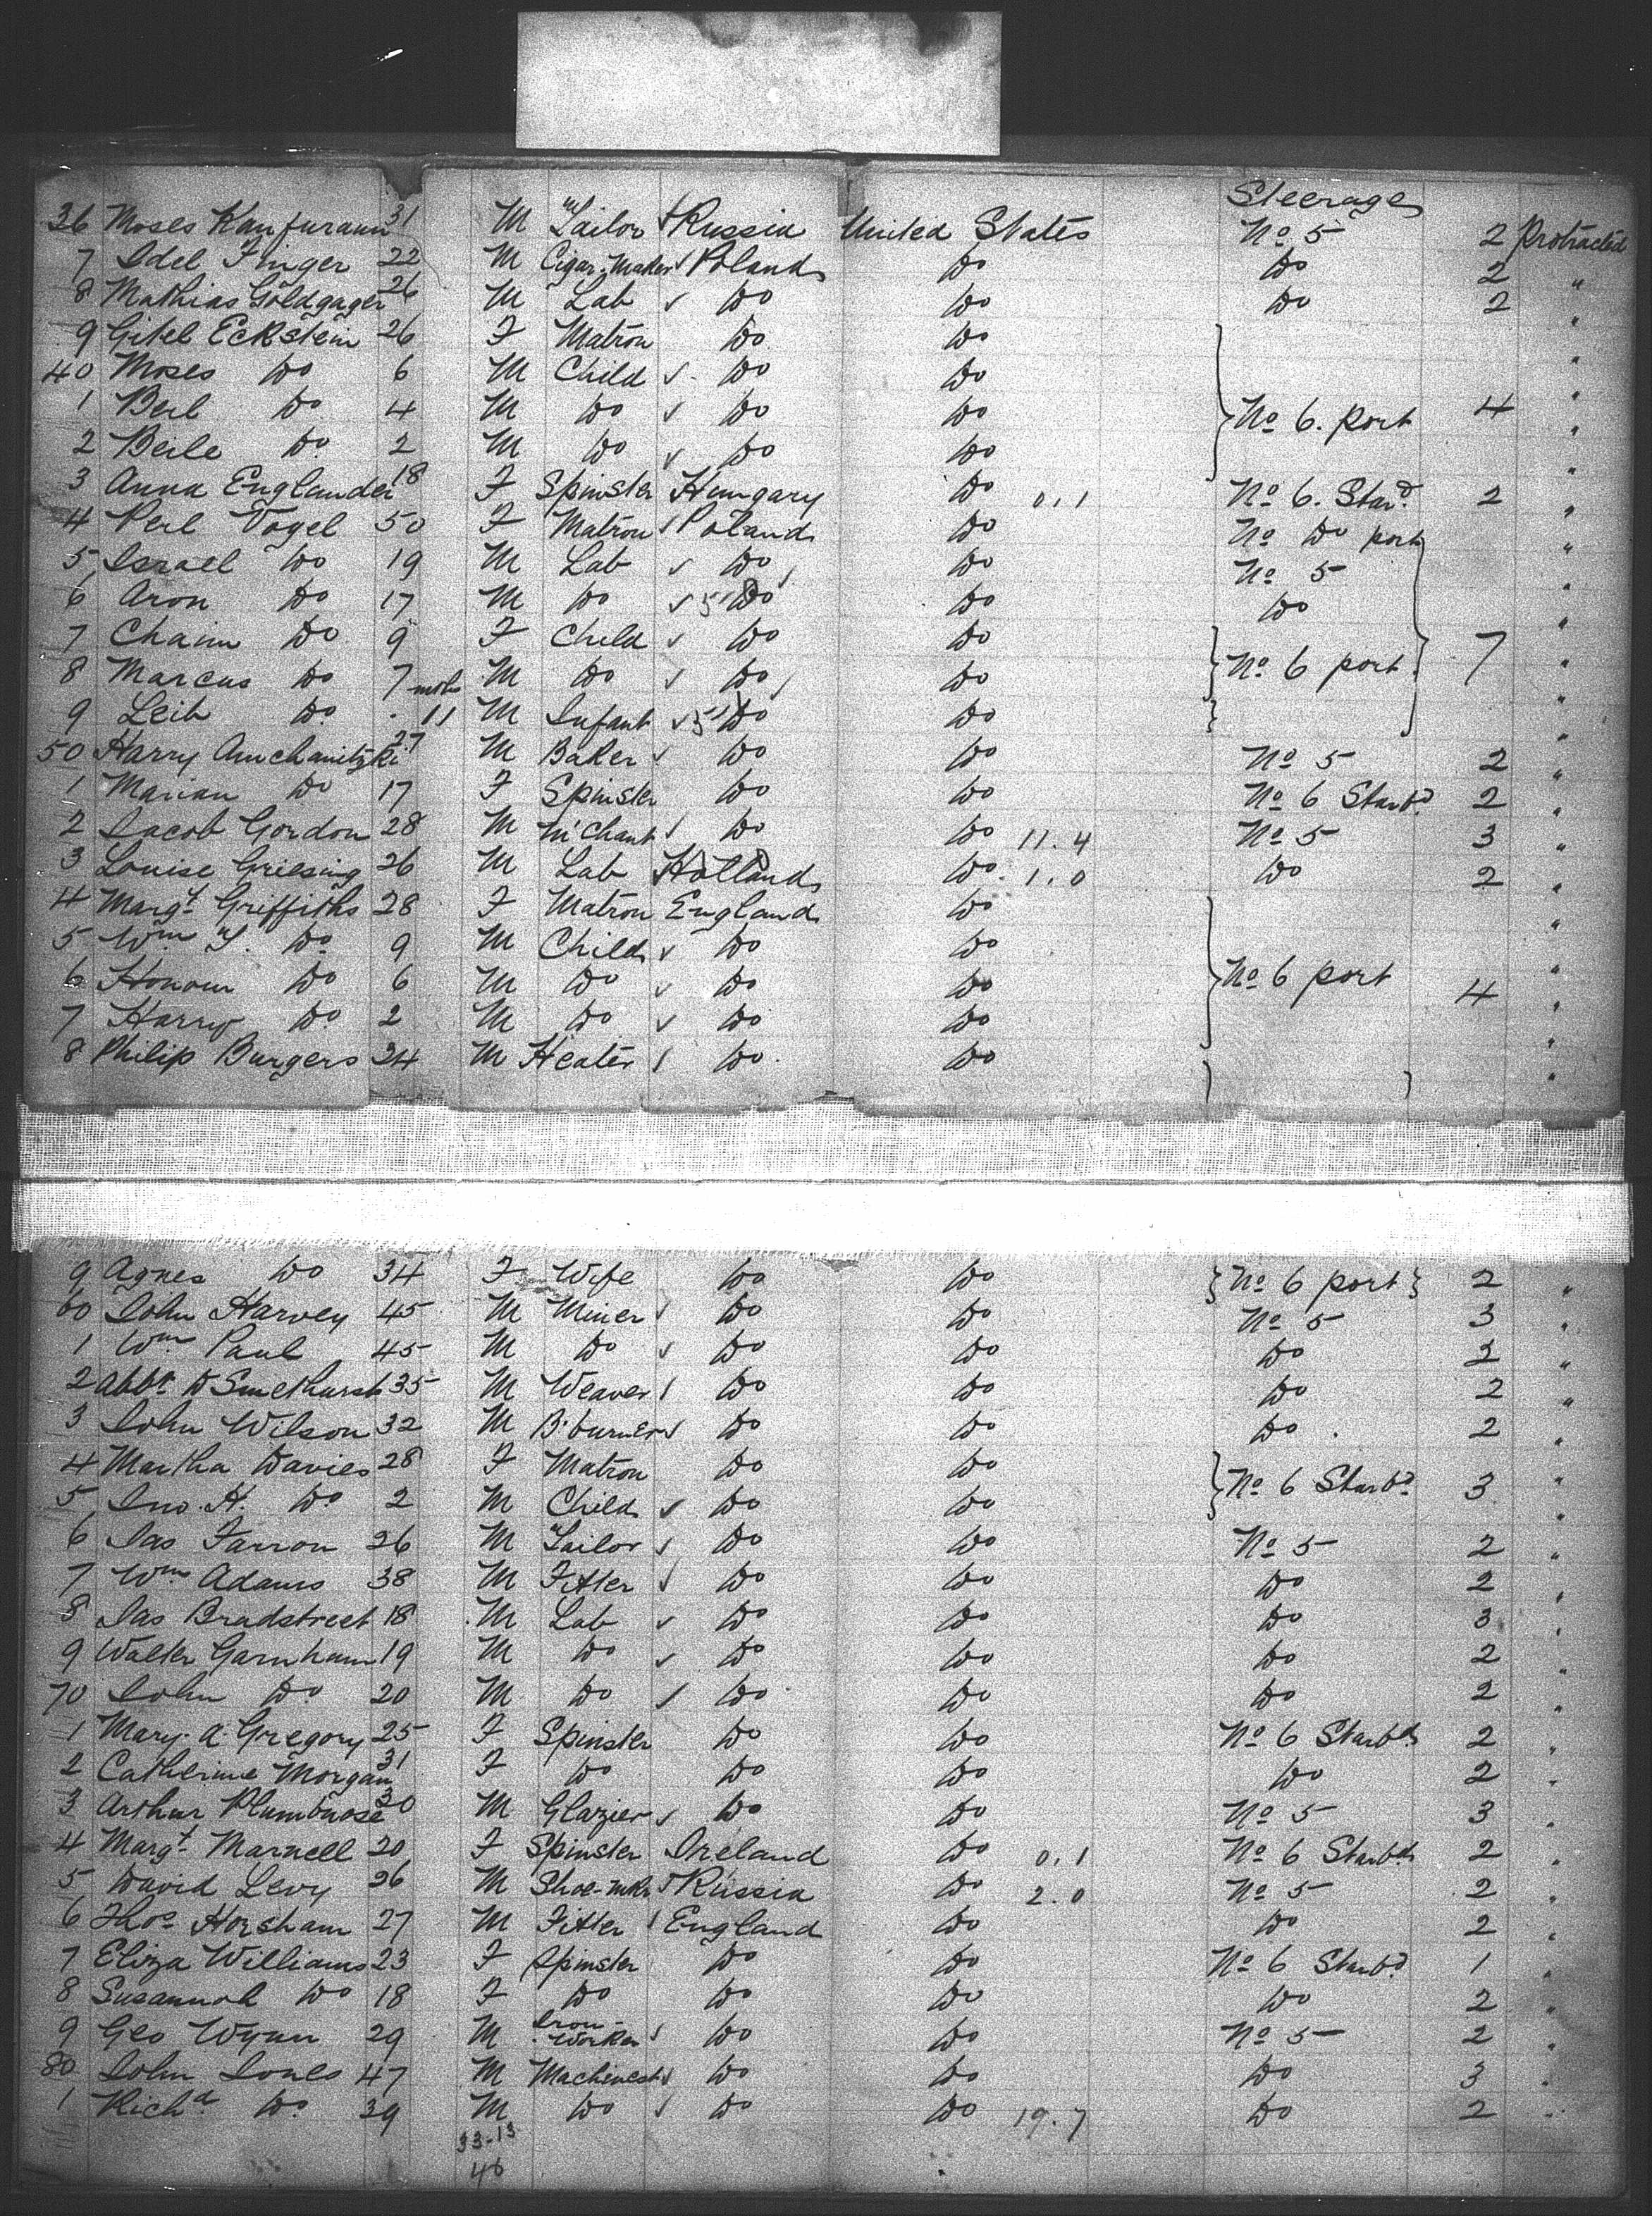 Steerage
36 Moses Kaufurann 31 M Tailor Russia United States No 5 2 Protracted
7 Idel Finger 22 M Cigar Maker Poland Do Do 2 "
8 Mathias Goldgager 26 M Lab Do Do Do 2 "
9 Gitel Eckstein 26 F Matron Do Do "
40 Moses Do 6 M Child Do Do "
1 Berl Do 4 M Do Do Do No 6. port 4 "
2 Beile Do 2 M Do Do Do "
3 Anna Englander 18 F Spinster Hungary Do 0.1 No 6. Stard 2 "
4 Perl Vogel 50 F Matron Poland Do No Do port "
5 Israel Do 19 M Lab Do Do No 5 "
6 Aron Do 17 M Do Do Do Do "
7 Chaim Do 9 F Child Do Do "
8 Marcus Do 7 M Do Do Do No 6 port 7 "
9 Leib Do mths 11 M Infant Do Do "
50 Harry Amchanitzki 27 M Baker Do Do No 5 2 "
1 Marian Do 17 F Spinster Do Do No 6 Starbd 2 "
2 Jacob Gordon 28 M M'chant Do Do 11.4 No 5 3 "
3 Louise Griesing 26 M Lab Holland Do 1.0 Do 2 "
4 Margt Griffiths 28 F Matron England Do "
5 Wm T. Do 9 M Child Do Do "
6 Honour Do 6 M Do Do Do No 6 port 4 "
7 Harry Do 2 M Do Do Do "
8 Philip Burgers 24 M Heater Do Do "
9 Agnes Do 34 F Wife Do Do No 6 port 2 "
60 John Harvey 45 M Miner Do Do No 5 3 "
1 Wm Paul 45 M Do Do Do Do 2 "
2 Abbt D Smethurst 35 M Weaver Do Do Do 2 "
3 John Wilson 32 M B.burner Do Do Do 2 "
4 Martha Davies 28 F Matron Do Do No 6 Starbd 3 "
5 Jno. H. Do 2 M Child Do Do "
6 Jas Farron 26 M Tailor Do Do No 5 2 "
7 Wm Adams 38 M Fitter Do Do Do 2 "
8 Jas Bradstreet 18 M Lab Do Do Do 3 "
9 Walter Garnham 19 M Do Do Do Do 2 "
70 John Do 20 M Do Do Do Do 2 "
1 Mary A. Gregory 25 F Spinster Do Do No 6 Starbd 2 "
2 Catherine Morgan 31 F Do Do Do Do 2 "
3 Arthur Plumbrose 30 M Glazier Do Do No 5 3 "
4 Margt Marnell 20 F Spinster Ireland Do 0.1 No 6 Starbd 2 "
5 David Levy 26 M Shoe-mkr Russia Do 2.0 No 5 2 "
6 Thos Horsham 27 M Fitter England Do Do 2 "
7 Eliza Williams 23 F Spinster Do Do No 6 Starbd 1 "
8 Susannah Do 18 F Do Do Do Do 2 "
9 Geo Wynn 29 M Iron-Worker Do Do No 5 2 "
80 John Jones 47 M Machinest Do Do Do 3 "
1 Richd Do 39 M Do Do Do 19.7 Do 2 "
33-13
46